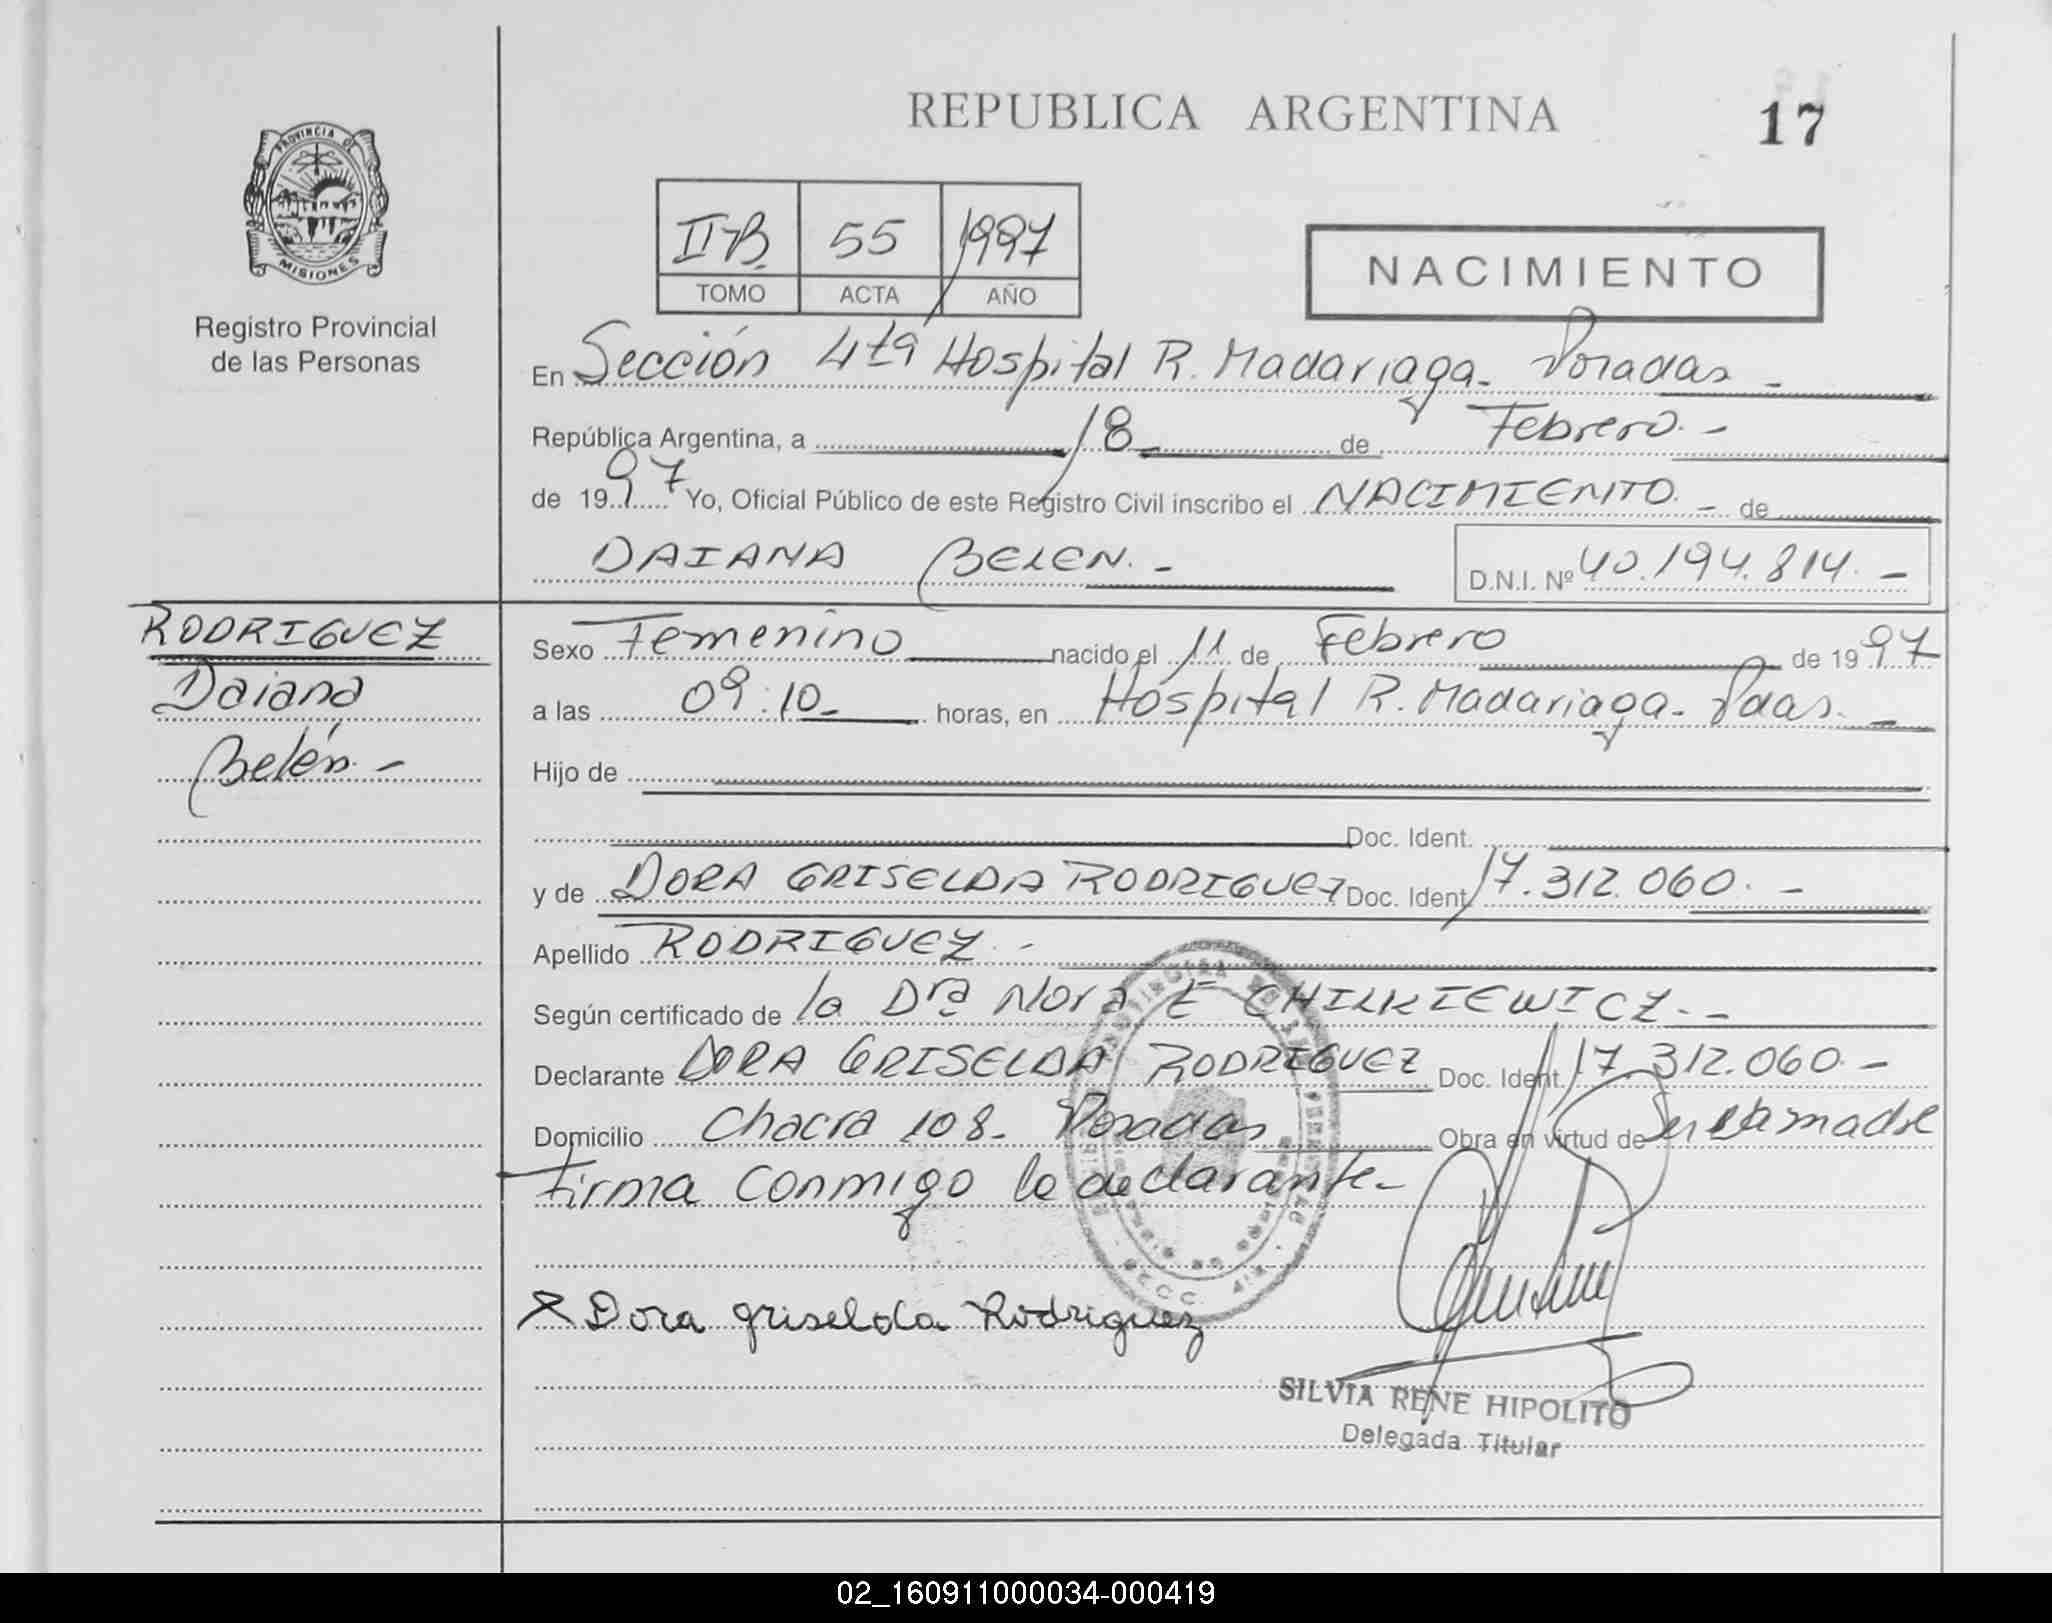 REPUBLICA ARGENTINA
17
PROVINCIA DE
MISIONES
Registro Provincial
de las Personas
II-B 55 1997
TOMO ACTA AÑO
NACIMIENTO
En Sección 4ta Hospital R. Madariaga - Posadas -
República Argentina, a 18 - de Febrero. -
de 1997 Yo, Oficial Público de este Registro Civil inscribo el NACIMIENTO. - de
DAIANA BELEN. - D.N.I. Nº 40.194.814. -
RODRIGUEZ
Daiana
Belén. -
Sexo Femenino nacido el 11 de Febrero de 1997
a las 09:10 - horas, en Hospital R. Madariaga - Pdas. -
Hijo de
Doc. Ident.
y de DORA GRISELDA RODRIGUEZ Doc. Ident. 17.312.060. -
Apellido RODRIGUEZ. -
Según certificado de la Dra Nora E CHILKIEWICZ. -
Declarante DORA GRISELDA RODRIGUEZ Doc. Ident. 17.312.060. -
Domicilio Chacra 108 - Posadas Obra en virtud de Ser la madre
Firma conmigo la declarante -
X Dora griselda Rodriguez
SILVIA RENE HIPOLITO
Delegada Titular
02_160911000034-000419